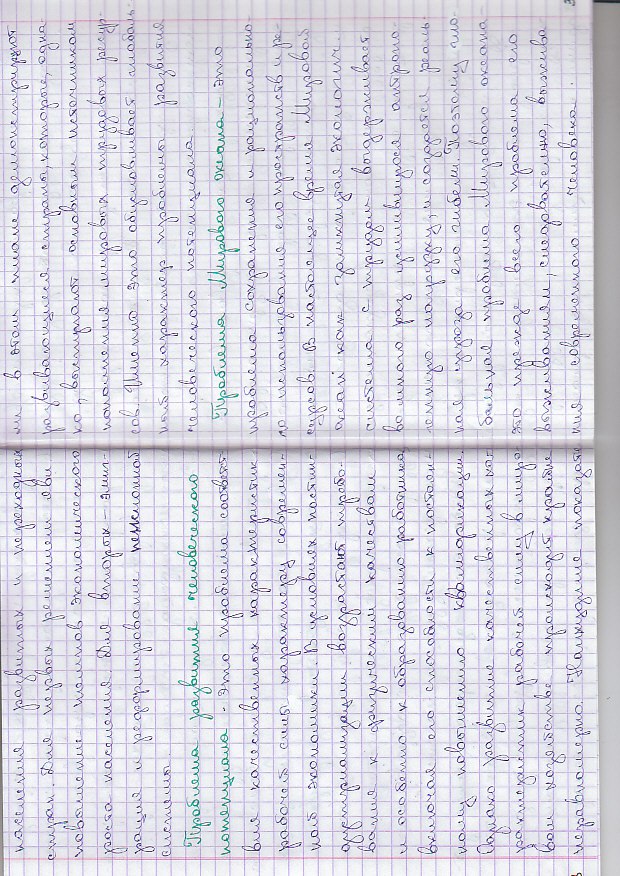 населения развитых и переходных
стран. Для первых решением яви
повышение темпов экономического
роста населения. Для вторых – эмиг-
рация и реформирование пенсионной
системы.
Проблема развития человеческого
потенциала – это проблема соответ
вия качественных характеристик
рабочей силы характеру современ-
ной экономики. В условиях постин-
дустриализации возрастают требо-
вания к физическим качествам
и особенно к образованию работника,
включая его способности к постоян-
ному повышению квалификации.
Однако развитие качественных ха-
рактеристик рабочей силы в миро
вом хозяйстве происходит крайне
неравномерно. Наихудшие показате
ли в этом плане демонстрируют
развивающиеся страны, которые, одна
ко, выступают основным источником
пополнения мировых трудовых ресур-
сов. Именно это обусловливает глобаль
ный характер проблемы развития
человеческого потенциала.
Проблема Мирового океана – это
проблема сохранения и рационально-
го использования его пространств и ре-
сурсов. В настоящее время Мировой
океан как замкнутая экологич.
система с трудом выдерживает
во много раз усилившуюся антропо-
генную нагрузку, и создаётся реаль-
ная угроза его гибели. Поэтому гло-
бальная проблема Мирового океана -
это прежде всего проблема его
выживания и, следовательно, выжива
ния современного человека.